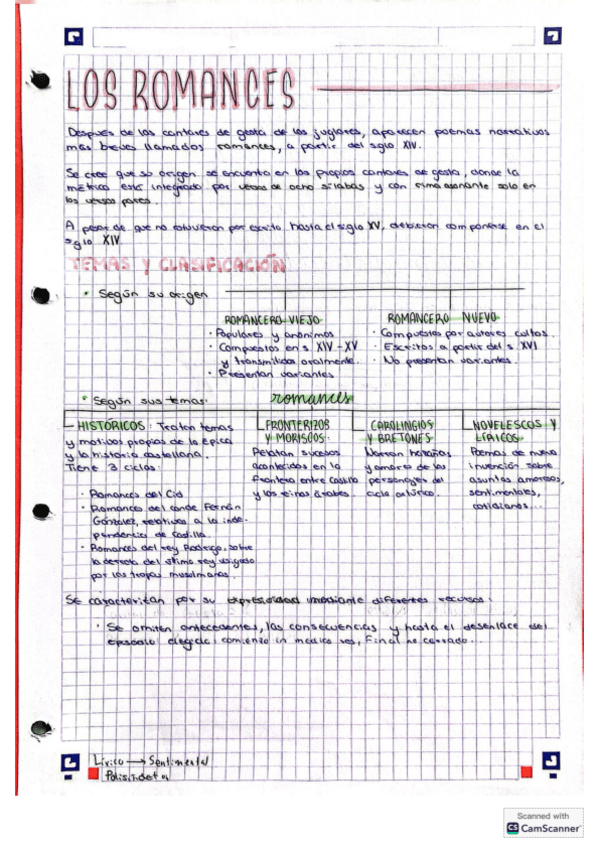 LOS ROMANCES
Después de los cantares de gesta de los juglares, aparecen poemas narrativos
más breves llamados romances, a partir del siglo XIV.
Se cree que su origen se encuentra en los propios cantares de gesta, donde la
métrica está integrada por versos de ocho sílabas y con rima asonante solo en
los versos pares.
A pesar de que no estuvieron por escrito hasta el siglo XV, debieron componerse en el
siglo XIV
TEMAS Y CLASIFICACIÓN
· Según su origen
ROMANCERO VIEJO
· Populares y anónimos
· Compuestos en s XIV-XV
y transmitidos oralmente.
· Presentan variantes
ROMANCERO NUEVO
· Compuestos por autores cultos.
· Escritos a partir del s. XVI
· No presentan variantes.
· Según sus temas:
romances
HISTÓRICOS: Tratan temas
y motivos propios de la épica
y la historia castellana.
Tiene 3 ciclos:
· Romances del Cid
· Romances del conde Fernán
González, relativos a la inde-
pendencia de Castilla.
· Romances del rey Rodrigo, sobre
la derrota del último rey visigodo
por las tropas musulmanas.
FRONTERIZOS
Y MORISCOS:
Relatan sucesos
acontecidos en la
frontera entre Castilla
y los reinos árabes.
CAROLINGIOS
Y BRETONES
Narran hazañas
y amores de los
personajes del
ciclo artúrico.
NOVELESCOS Y
LÍRICOS
Poemas de nueva
invención sobre
asuntos amorosos,
sentimentales,
cotidianos...
Se caracterizan por su expresividad mediante diferentes recursos:
· Se omiten antecedentes, las consecuencias y hasta el desenlace del
episodio elegido: comienzo in medias res, Final no cerrado...
Lírico → Sentimental
Polisíndeton
Scanned with
CS CamScanner